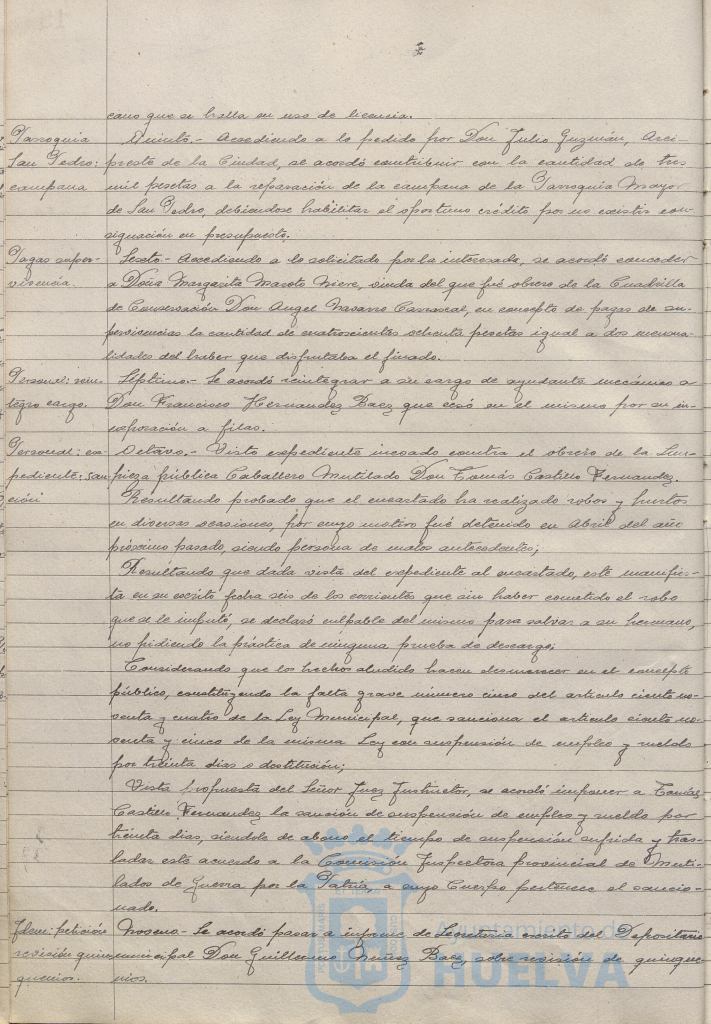 cano que se halla en uso de licencia.
Parroquia
San Pedro:
campana
Quinto.- Accediendo a lo pedido por Don Julio Guzmán, Arci-
preste de la Ciudad, se acordó contribuir con la cantidad de tres
mil pesetas a la reparación de la campana de la Parroquia Mayor
de San Pedro, debiendose habilitar el oportuno crédito por no existir con-
signación en presupuesto.
Pagas super-
vivencia.
Sexto.- Accediendo a lo solicitado por la interesada, se acordó conceder
a Doña Margarita Macoto Niere, viuda del que fué obrero de la Cuadrilla
de Conservación Don Angel Navarro Carrascal, en concepto de pagas de su-
pervivencias la cantidad de cuatrocientas ochenta pesetas igual a dos mensua-
lidades del haber que disfrutaba el finado.
Personal: rein-
tegro cargo.
Séptimo.- Se acordó reintegrar a su cargo de ayudante mecánico a
Don Francisco Hernandez Baez que cesó en el mismo por su in-
corporación a filas.
Personal: ex-
pediente: san-
ción
Octavo.- Visto expediente incoado contra el obrero de la Lim-
pieza pública Caballero Mutilado Don Tomás Castillo Fernandez.
Resultando probado que el encartado ha realizado robos y hurtos
en diversas ocasiones, por cuyo motivo fué detenido en Abril del año
próximo pasado, siendo persona de malos antecedentes;
Resultando que dada vista del expediente al encartado, este manifies-
ta en su escrito fecha seis de los corrientes que sin haber cometido el robo
que se le imputó, se declaró culpable del mismo para salvar a su hermano,
no pidiendo la práctica de ninguna prueba de descargo;
Considerando que los hechos aludido hacen desmerecer en el concepto
público, constituyendo la falta grave número cinco del articulo ciento no-
venta y cuatro de la Ley Municipal, que sanciona el articulo ciento no-
venta y cinco de la misma Ley con suspensión de empleo y sueldo
por treinta dias o destitución;
Vista propuesta del Señor Juez Instructor, se acordó imponer a Tomás
Castillo Fernandez la sanción de suspensión de empleo y sueldo por
treinta dias, siendole de abono el tiempo de suspensión sufrida y tras-
ladar este acuerdo a la Comisión Inspectora provincial de Muti-
lados de Guerra por la Patria, a cuyo Cuerpo pertenece el sancio-
nado.
Idem: petición
revisión quin-
quenios.
Noveno.- Se acordó pasar a informe de Secretaria escrito del Depositario
municipal Don Guillermo Muñoz Baez, sobre revisión de quinque-
nios.
ayuntamiento de
HUELVA